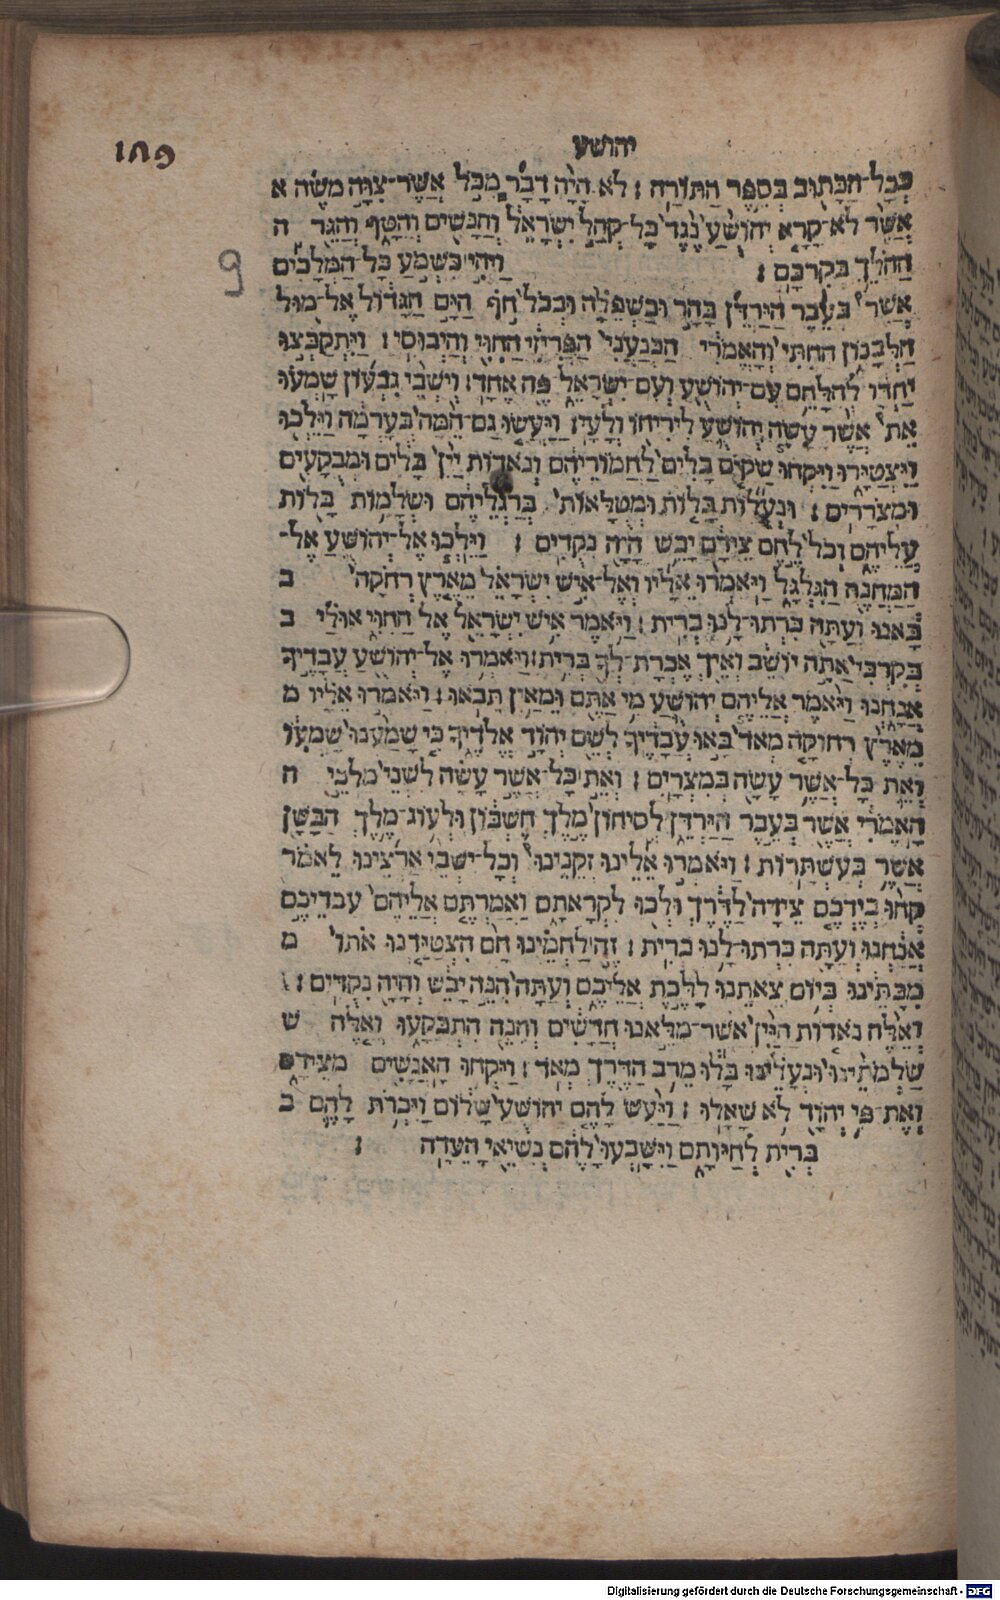 189
יהושע
ככָל־הכָּתוּב בְּסֵפֶר הַתּוֹרָה׃ לֹא הָיָה דָבָר מִכֹּל אֲשֶׁר־צִוָּה מֹשֶׁה א
אֲשֶׁר לֹא־קָרָא יְהוֹשֻׁעַ נֶגֶד כָּל־קְהַל יִשְׂרָאֵל וְהַנָּשִׁים וְהַטַּף וְהַגֵּר ה
הַהֹלֵךְ בְּקִרְבָּם׃ וַיְהִי כִשְׁמֹעַ כָּל־הַמְּלָכִים
9
אֲשֶׁר בְּעֵבֶר הַיַּרְדֵּן בָּהָר וּבַשְּׁפֵלָה וּבְכֹל חוֹף הַיָּם הַגָּדוֹל אֶל־מוּל
הַלְּבָנוֹן הַחִתִּי וְהָאֱמֹרִי הַכְּנַעֲנִי הַפְּרִזִּי הַחִוִּי וְהַיְבוּסִי׃ וַיִּתְקַבְּצוּ
יַחְדָּו לְהִלָּחֵם עִם־יְהוֹשֻׁעַ וְעִם־יִשְׂרָאֵל פֶּה אֶחָד׃ וְיֹשְׁבֵי גִבְעוֹן שָׁמְעוּ
אֵת אֲשֶׁר עָשָׂה יְהוֹשֻׁעַ לִירִיחוֹ וְלָעָי׃ וַיַּעֲשׂוּ גַם־הֵמָּה בְּעָרְמָה וַיֵּלְכוּ
וַיִּצְטַיָּרוּ וַיִּקְחוּ שַׂקִּים בָּלִים לַחֲמוֹרֵיהֶם וְנֹאדוֹת יַיִן בָּלִים וּמְבֻקָּעִים
וּמְצֹרָרִים׃ וּנְעָלוֹת בָּלוֹת וּמְטֻלָּאוֹת בְּרַגְלֵיהֶם וּשְׂלָמוֹת בָּלוֹת
עֲלֵיהֶם וְכֹל לֶחֶם צֵידָם יָבֵשׁ הָיָה נִקֻּדִים׃ וַיֵּלְכוּ אֶל־יְהוֹשֻׁעַ אֶל־
הַמַּחֲנֶה הַגִּלְגָּל וַיֹּאמְרוּ אֵלָיו וְאֶל־אִישׁ יִשְׂרָאֵל מֵאֶרֶץ רְחֹקָה ב
בָּאנוּ וְעַתָּה כִּרְתוּ־לָנוּ בְרִית׃ וַיֹּאמֶר אִישׁ יִשְׂרָאֵל אֶל הַחִוִּי אוּלַי ב
בְּקִרְבִּי אַתָּה יוֹשֵׁב וְאֵיךְ אֶכְרָת־לְךָ בְרִית׃ וַיֹּאמְרוּ אֶל־יְהוֹשֻׁעַ עֲבָדֶיךָ
אֲנָחְנוּ וַיֹּאמֶר אֲלֵיהֶם יְהוֹשֻׁעַ מִי אַתֶּם וּמֵאַיִן תָּבֹאוּ׃ וַיֹּאמְרוּ אֵלָיו מ
מֵאֶרֶץ רְחוֹקָה מְאֹד בָּאוּ עֲבָדֶיךָ לְשֵׁם יְהוָֹד אֱלֹדֶיךָ כִּי שָׁמַעְנוּ שָׁמְעוֹ
וְאֵת כָּל־אֲשֶׁר עָשָׂה בְּמִצְרָיִם׃ וְאֵת כָּל־אֲשֶׁר עָשָׂה לִשְׁנֵי מַלְכֵי ה
הָאֱמֹרִי אֲשֶׁר בְּעֵבֶר הַיַּרְדֵּן לְסִיחוֹן מֶלֶךְ חֶשְׁבּוֹן וּלְעוֹג־מֶלֶךְ הַבָּשָׁן
אֲשֶׁר בְּעַשְׁתָּרוֹת׃ וַיֹּאמְרוּ אֵלֵינוּ זְקֵנֵינוּ וְכָל־יֹשְׁבֵי אַרְצֵינוּ לֵאמֹר
קְחוּ בְיֶדְכֶם צֵידָה לַדֶּרֶךְ וּלְכוּ לִקְרָאתָם וַאֲמַרְתֶּם אֲלֵיהֶם עַבְדֵיכֶם
אֲנַחְנוּ וְעַתָּה כִּרְתוּ־לָנוּ בְרִית׃ זֶה לַחְמֵינוּ חָם הִצְטַיַּדְנוּ אֹתוֹ מ
מִבָּתֵּינוּ בְּיוֹם צֵאתֵנוּ לָלֶכֶת אֲלֵיכֶם וְעַתָּה הִנֵּה יָבֵשׁ וְהָיָה נִקֻּדִים׃
וְאֵלֶּה נֹאדוֹת הַיַּיִן אֲשֶׁר־מִלֵּאנוּ חֲדָשִׁים וְהִנֵּה הִתְבַּקָּעוּ וְאֵלֶּה ש
שַׂלְמֹתֵינוּ וּנְעָלֵינוּ בָּלוּ מֵרֹב הַדֶּרֶךְ מְאֹד׃ וַיִּקְחוּ הָאֲנָשִׁים מִצֵּידָם
וְאֶת־פִּי יְהוָֹד לֹא שָׁאָלוּ׃ וַיַּעַשׂ לָהֶם יְהוֹשֻׁעַ שָׁלוֹם וַיִּכְרֹת לָהֶם ב
בְּרִית לְחַיּוֹתָם וַיִּשָּׁבְעוּ לָהֶם נְשִׂיאֵי הָעֵדָה׃
Digitalisierung gefördert durch die Deutsche Forschungsgemeinschaft - DFG